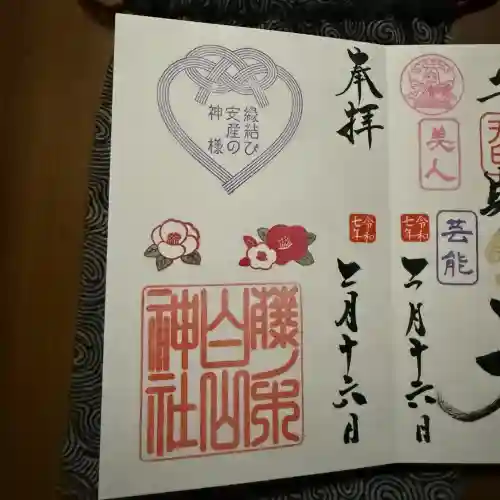 美人
芸能
令和
七年
二月十六日
奉拝
令和
七年
二月十六日
縁結び
安産の
神様
白山
神社